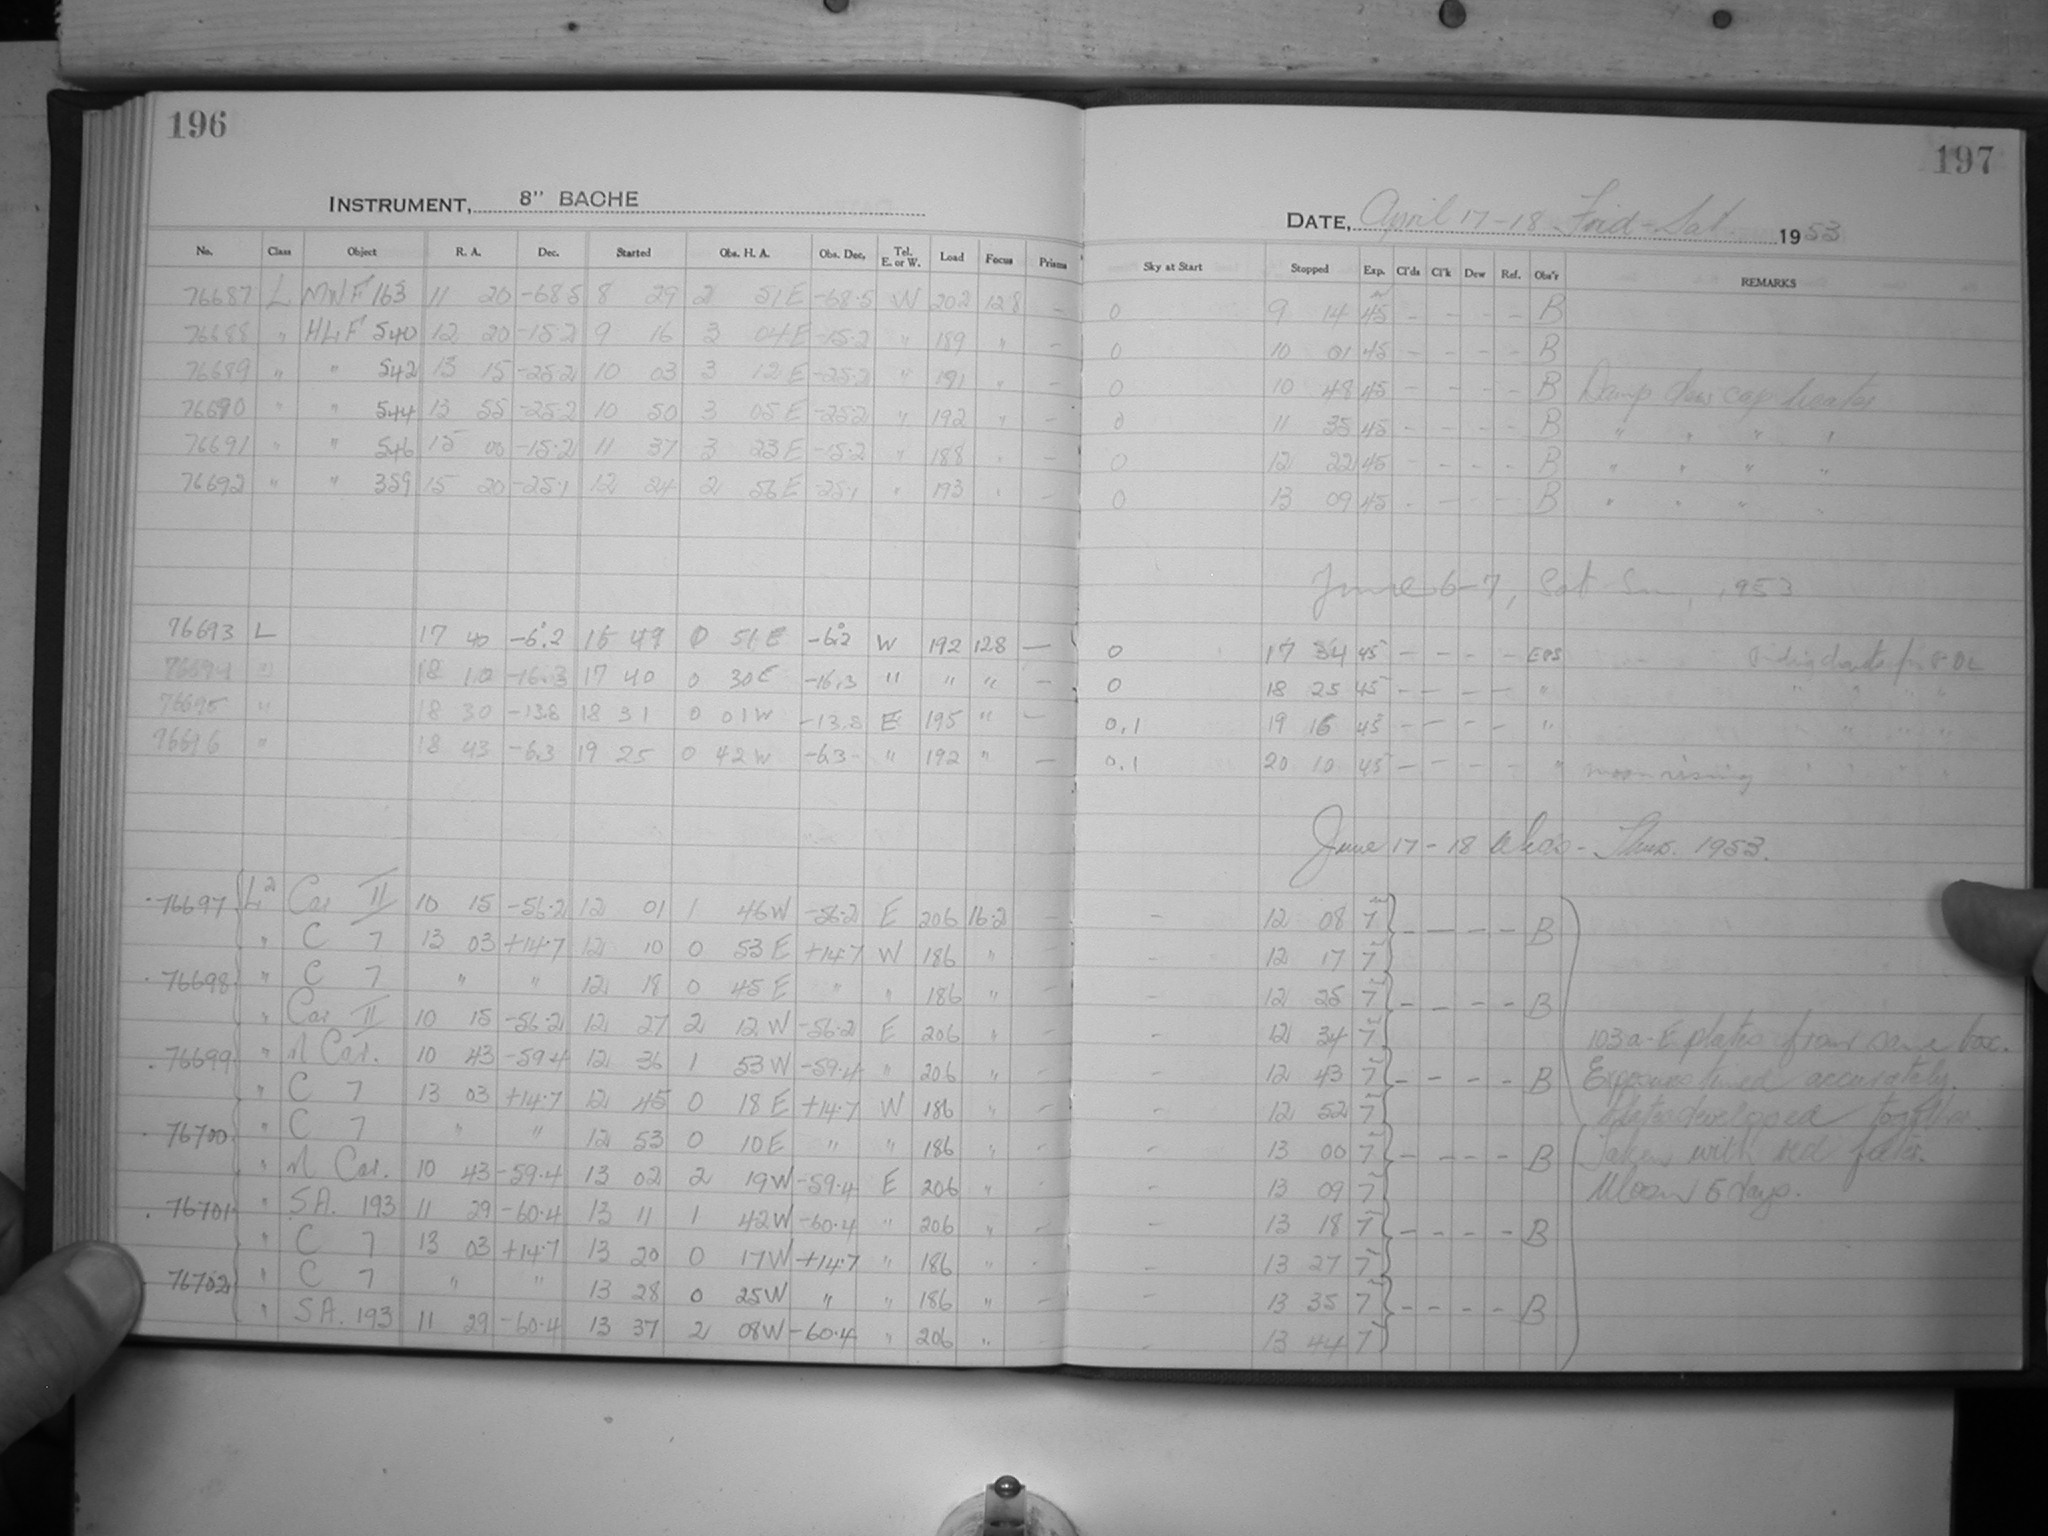 196
INSTRUMENT, 8" BACHE
No. Class Object R. A. Dec. Started Obs. H. A. Obs. Dec. Tel. E. or W. Load Focus Prisms
76687 L MWF 163 11 20 -68.5 8 29 2 51 E -68.5 W 202 12.8 -
76688 " HLF 540 12 20 -15.2 9 16 3 04 E -15.2 " 189 " -
76689 " " 542 13 15 -25.2 10 03 3 12 E -25.2 " 191 " -
76690 " " 544 13 55 -25.2 10 50 3 05 E -25.2 " 192 " -
76691 " " 546 15 00 -15.2 11 37 3 23 E -15.2 " 188 " -
76692 " " 359 15 20 -25.1 12 24 2 56 E -25.1 " 193 " -
76693 L 17 40 -6.2 16 49 0 51 E -6.2 W 192 128 -
76694 " 18 10 -16.3 17 40 0 30 E -16.3 " " " -
76695 " 18 30 -13.8 18 31 0 01 W -13.8 E 195 " -
76696 " 18 43 -6.3 19 25 0 42 W -6.3 " 192 " -
76697 L2 Car II 10 15 -56.2 12 01 1 46 W -56.2 E 206 16.2 -
" C 7 13 03 +14.7 12 10 0 53 E +14.7 W 186 " -
76698 " C 7 " " 12 18 0 45 E " " 186 " -
" Car II 10 15 -56.2 12 27 2 12 W -56.2 E 206 " -
76699 " η Car. 10 43 -59.4 12 36 1 53 W -59.4 " 206 " -
" C 7 13 03 +14.7 12 45 0 18 E +14.7 W 186 " -
76700 " C 7 " " 12 53 0 10 E " " 186 " -
" η Car. 10 43 -59.4 13 02 2 19 W -59.4 E 206 " -
76701 " S.A. 193 11 29 -60.4 13 11 1 42 W -60.4 " 206 " -
" C 7 13 03 +14.7 13 20 0 17 W +14.7 " 186 " -
76702 " C 7 " " 13 28 0 25 W " " 186 " -
" S.A. 193 11 29 -60.4 13 37 2 08 W -60.4 " 206 " -
197
DATE, April 17-18 Frid-Sat. 1953
Sky at Start Stopped Exp. Cl'ds Cl'k Dew Ref. Obs'r REMARKS
0 9 14 45 - - - - B
0 10 01 45 - - - - B
0 10 48 45 - - - - B Damp dew cap heater
0 11 35 45 - - - - B " " " "
0 12 22 45 - - - - B " " " "
0 13 09 45 - - - - B " " " "
June 6-7, Sat Sun, 1953
0 17 34 45 - - - - EPS
0 18 25 45 - - - - " " " " "
0.1 19 16 45 - - - - " " " "
0.1 20 10 45 - - - - " moon rising " " "
June 17-18 Weds-Thurs. 1953.
- 12 08 7 - - - - B
- 12 17 7
- 12 25 7 - - - - B
- 12 34 7 103a-E plates from same box.
- 12 43 7 - - - - B Exposures timed accurately.
- 12 52 7 Plates developed together
- 13 00 7 - - - - B Taken with red filter.
- 13 09 7 Moon 6 days.
- 13 18 7 - - - - B
- 13 27 7
- 13 35 7 - - - - B
- 13 44 7